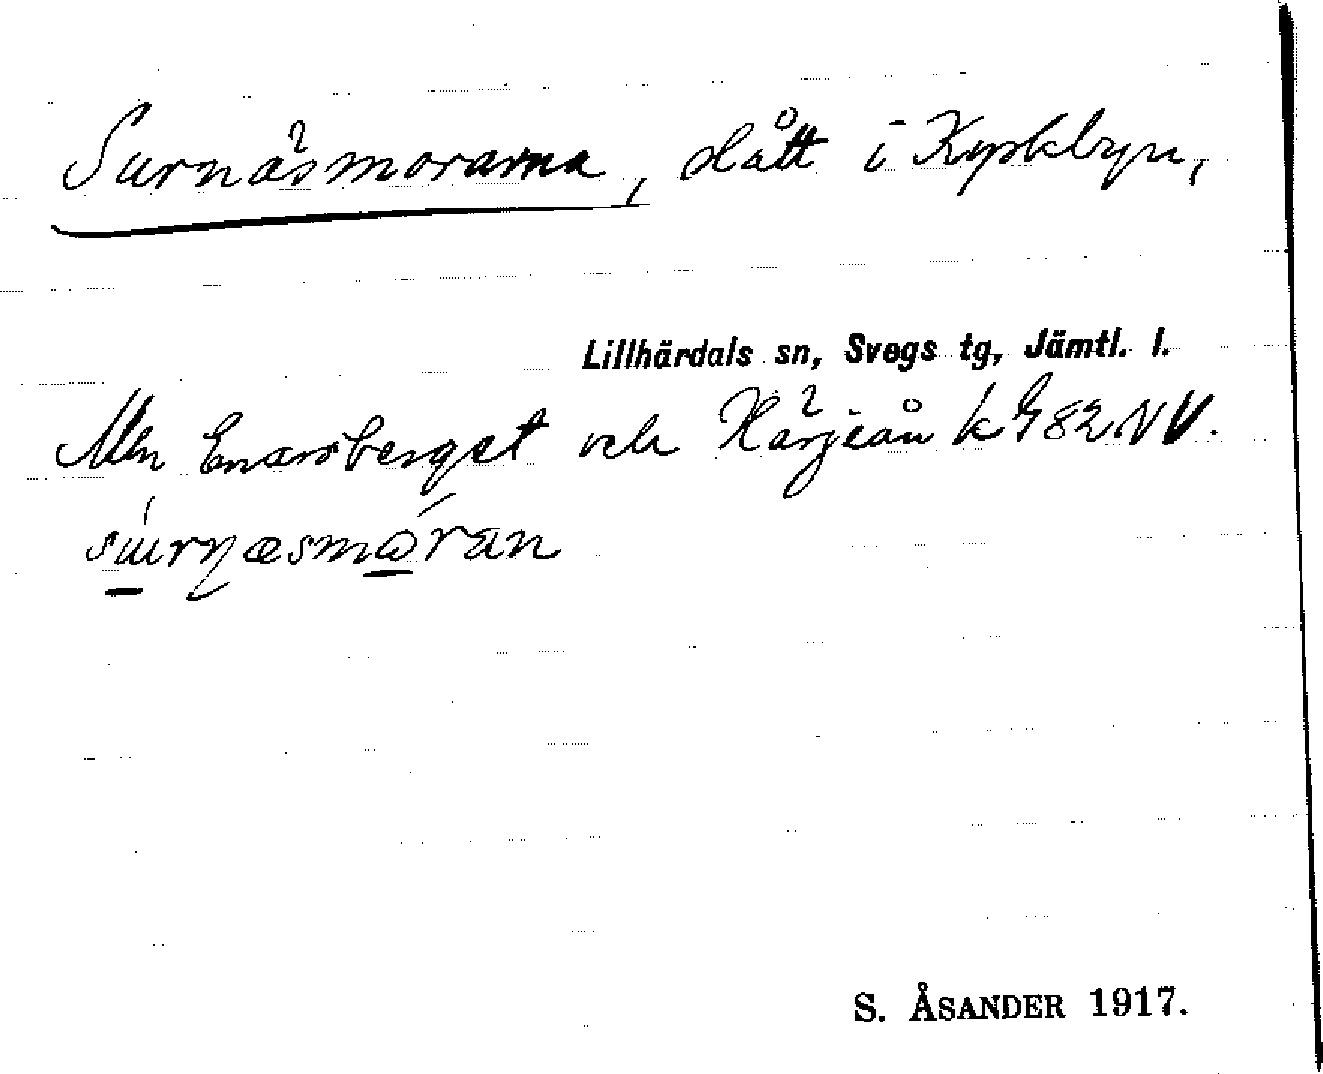 Surnäsmorarna, slått i Kyrkbyn,
Lillhärdals sn, Svegs tg, Jämtl. l.
Mln Enarsberget och Härjeån k G 82 NV.
S. ÅSANDER 1917.